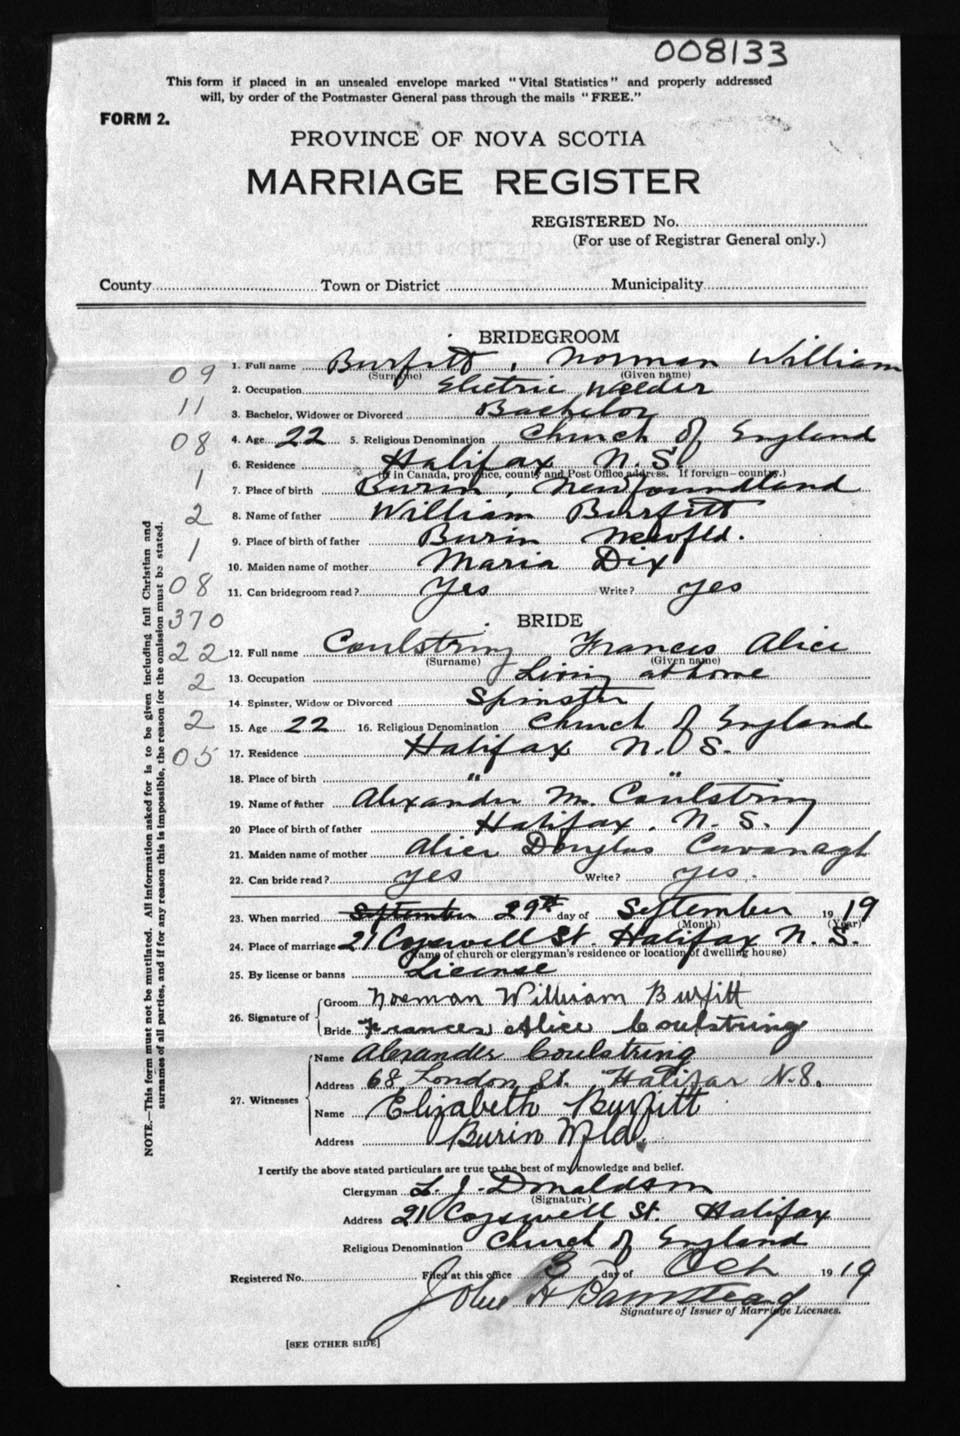 008133
This form if placed in an unsealed envelope marked "Vital Statistics" and properly addressed
will, by order of the Postmaster General pass through the mails "FREE."
FORM 2.
PROVINCE OF NOVA SCOTIA
MARRIAGE REGISTER
REGISTERED No.
(For use of Registrar General only.)
County Town or District Municipality
BRIDEGROOM
1. Full name Burfitt, Norman William
(Surname) (Given name)
09
2. Occupation Electric Welder
11
3. Bachelor, Widower or Divorced Bachelor
08
4. Age 22 5. Religious Denomination Church of England
6. Residence Halifax N.S.
(If in Canada, province, county and Post Office address. If foreign—country.)
1
7. Place of birth Burin, Newfoundland
2
8. Name of father William Burfitt
1
9. Place of birth of father Burin Newfld.
10. Maiden name of mother Maria Dix
08
11. Can bridegroom read? Yes Write? yes
370
BRIDE
22
12. Full name Coulstring Frances Alice
(Surname) (Given name)
2
13. Occupation Living at home
14. Spinster, Widow or Divorced Spinster
2
15. Age 22 16. Religious Denomination Church of England
05
17. Residence Halifax N.S.
18. Place of birth " "
19. Name of father Alexander M. Coulstring
20 Place of birth of father Halifax, N.S.
21. Maiden name of mother Alice Douglas Cavanagh
22. Can bride read? yes Write? yes.
23. When married September 29th day of September 1919
(Month) (Year)
24. Place of marriage 21 Cogswell St. Halifax N.S.
(Name of church or clergyman's residence or location of dwelling house)
25. By license or banns License
26. Signature of
Groom Norman William Burfitt
Bride Frances Alice Coulstring
27. Witnesses
Name Alexander Coulstring
Address 68 London St. Halifax N.S.
Name Elizabeth Burfitt
Address Burin Nfld.
I certify the above stated particulars are true to the best of my knowledge and belief.
Clergyman L. J. Donaldson
(Signature)
Address 21 Cogswell St. Halifax
Religious Denomination Church of England
Registered No. Filed at this office 3 day of Oct 1919
John H Barnstead
Signature of Issuer of Marriage Licenses.
[SEE OTHER SIDE]
NOTE.—This form must not be mutilated. All information asked for is to be given including full Christian and
surnames of all parties, and if for any reason this is impossible, the reason for the omission must be stated.